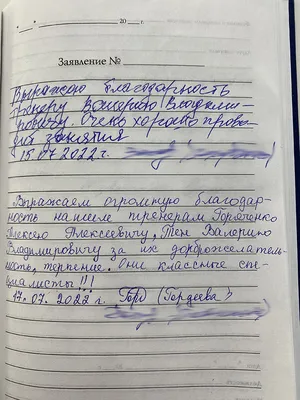 " " 20 г.
Заявление №
Выражаю благодарность
тренеру Валерию Владими-
ровичу. Очень хорошо прово-
дит занятия
15.07.2022г.
Выражаем огромную благодар-
ность нашим тренерам
Алексею Алексеевичу, Тен Валерию
Владимировичу за их доброжелатель-
ность, терпение. Они классные спе-
циалисты!!!
17.07.2022 г. (Гордеева)